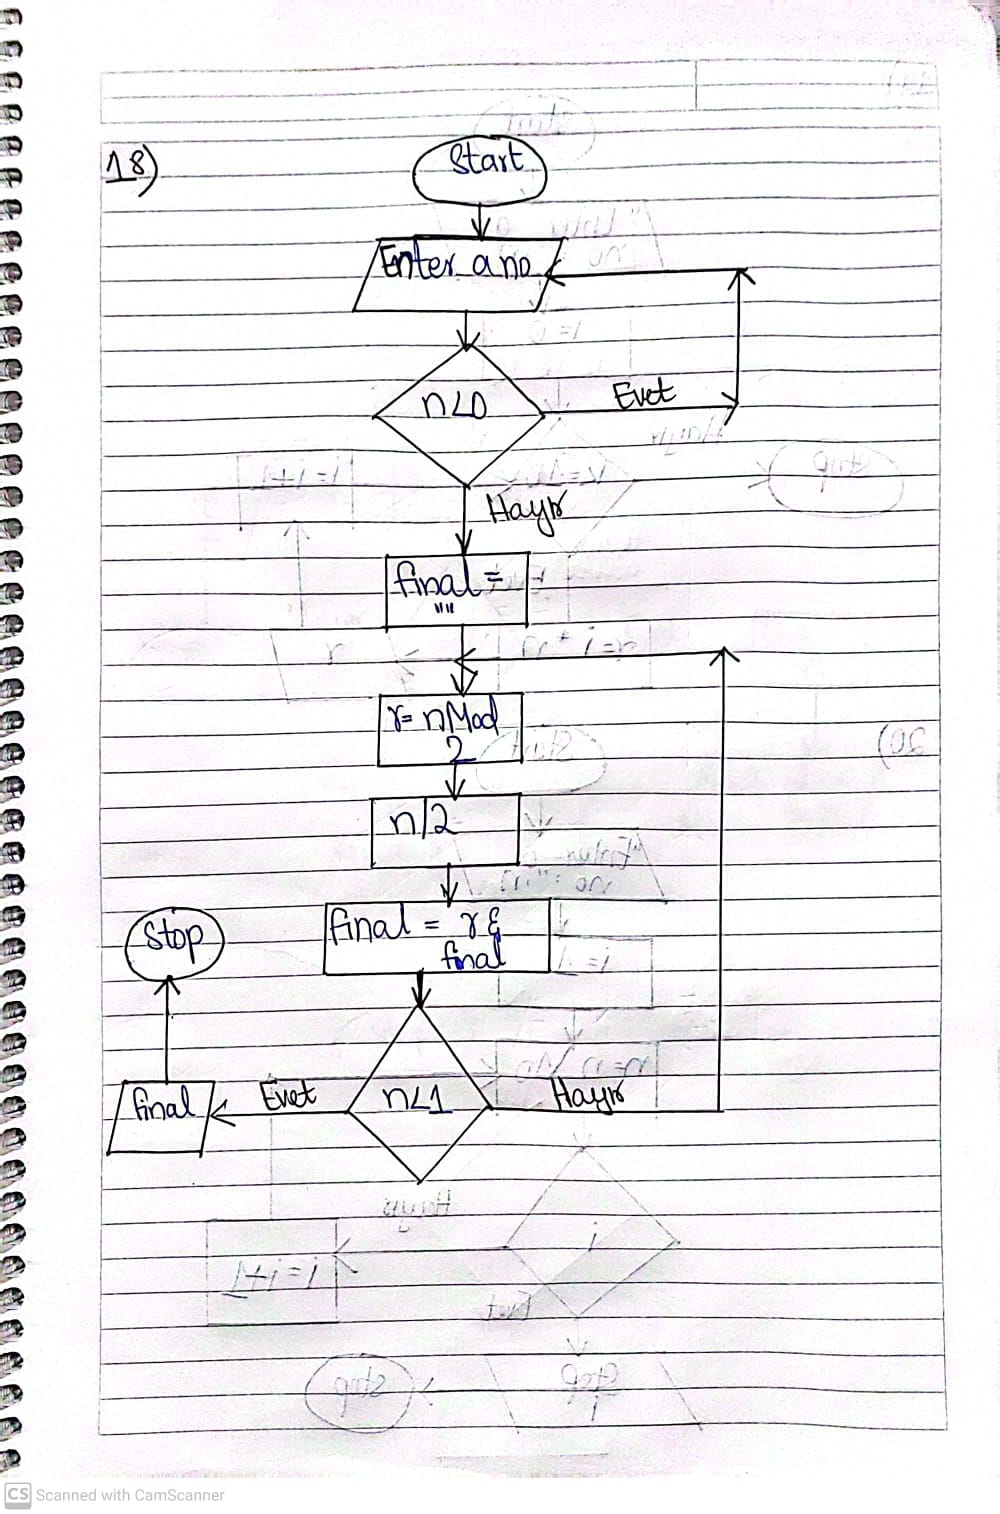 18)
Start
Enter a no
n<0
Evet
Hayır
final =
""
r= n Mod
2
n/2
final = r &
final
Stop
n<1
Evet
Hayır
final
CS Scanned with CamScanner